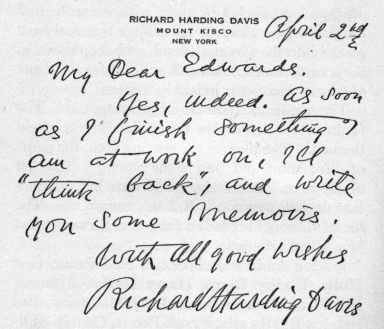 RICHARD HARDING DAVIS
MOUNT KISCO
NEW YORK
April 2nd
My Dear Edwards.
Yes, indeed. As soon
as I finish something I
am at work on, I'll
"think back", and write
you some Memoirs.
With all good wishes
Richard Harding Davis